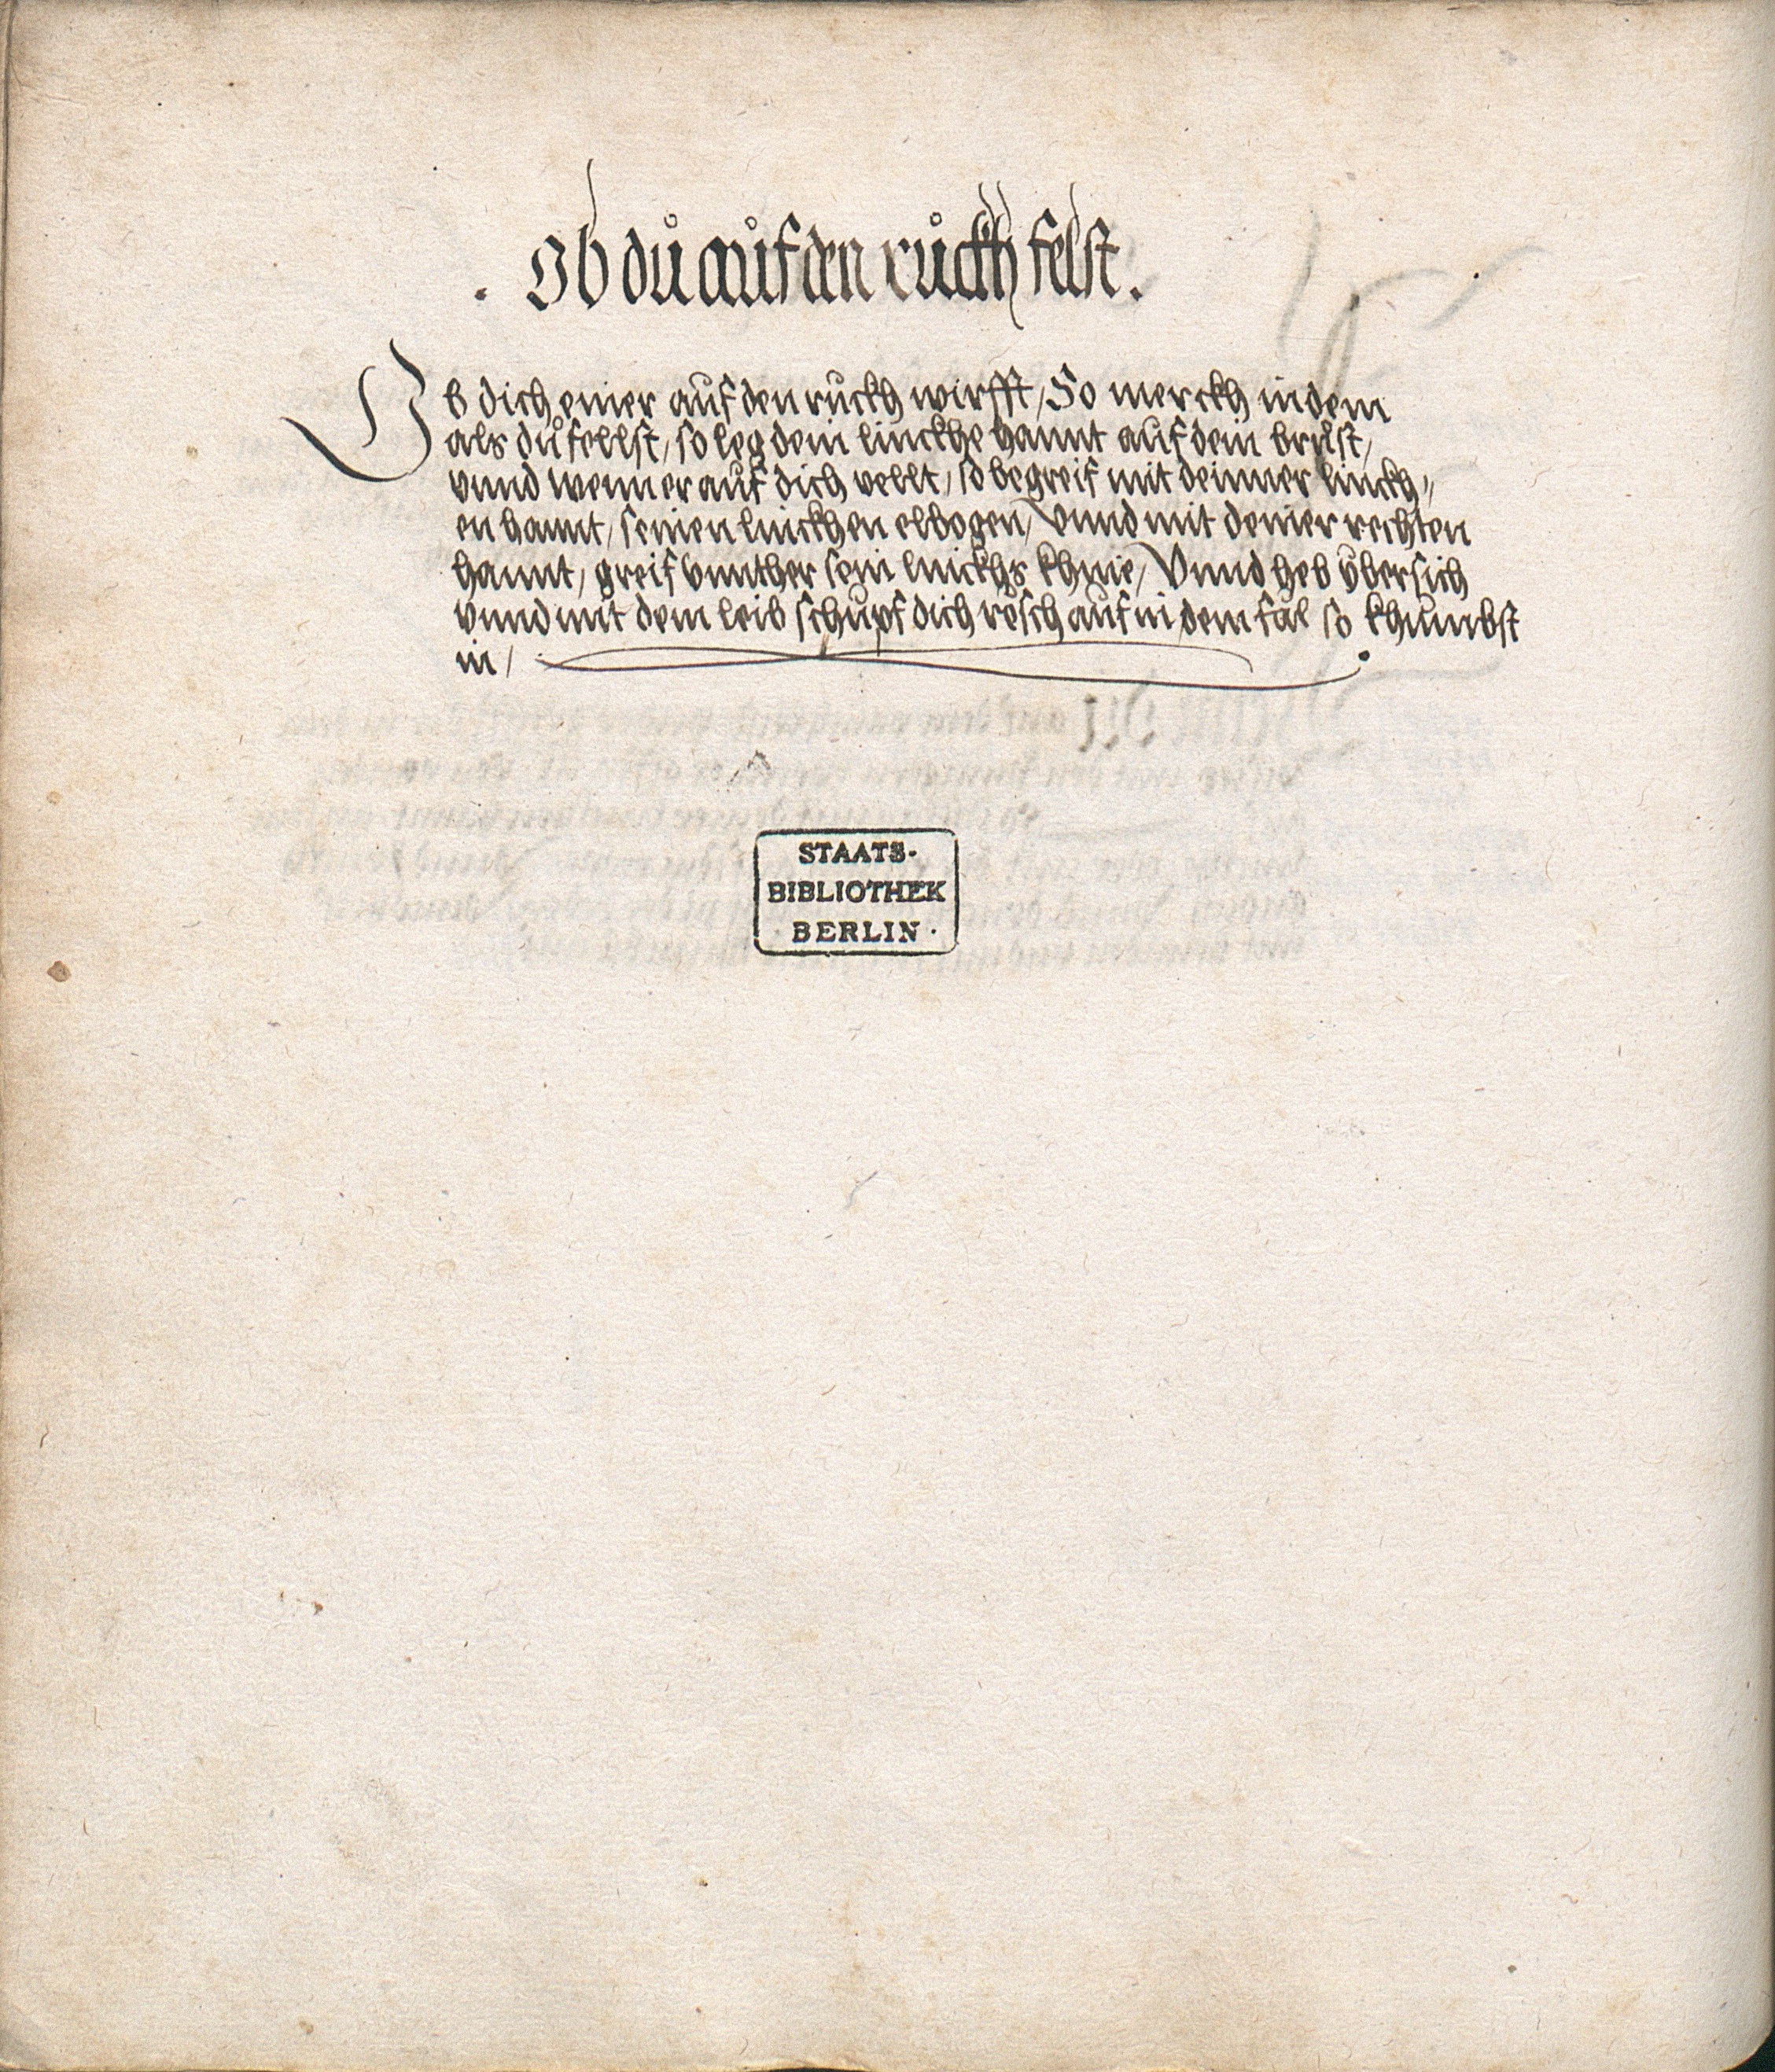 . Ob dů aůf den růckh felst .
Ob dich einer auf den ruckh wirfft / So merckh in dem
als dů fellst / so leg dein linckhe hannt auf dein brůst /
vnnd wenn er auf dich vellt / so begreif mit deinner linckh〃
en hannt / seinen linckhen elbogen / Vnnd mit deiner rechten
hannt / greif vnnther sein linckhs khnie / Vnnd heb ÿbersich
vnnd mit dem leib schupf dich rösch auf in dem fal so khumbst
in /
STAATS-
BIBLIOTHEK
· BERLIN ·